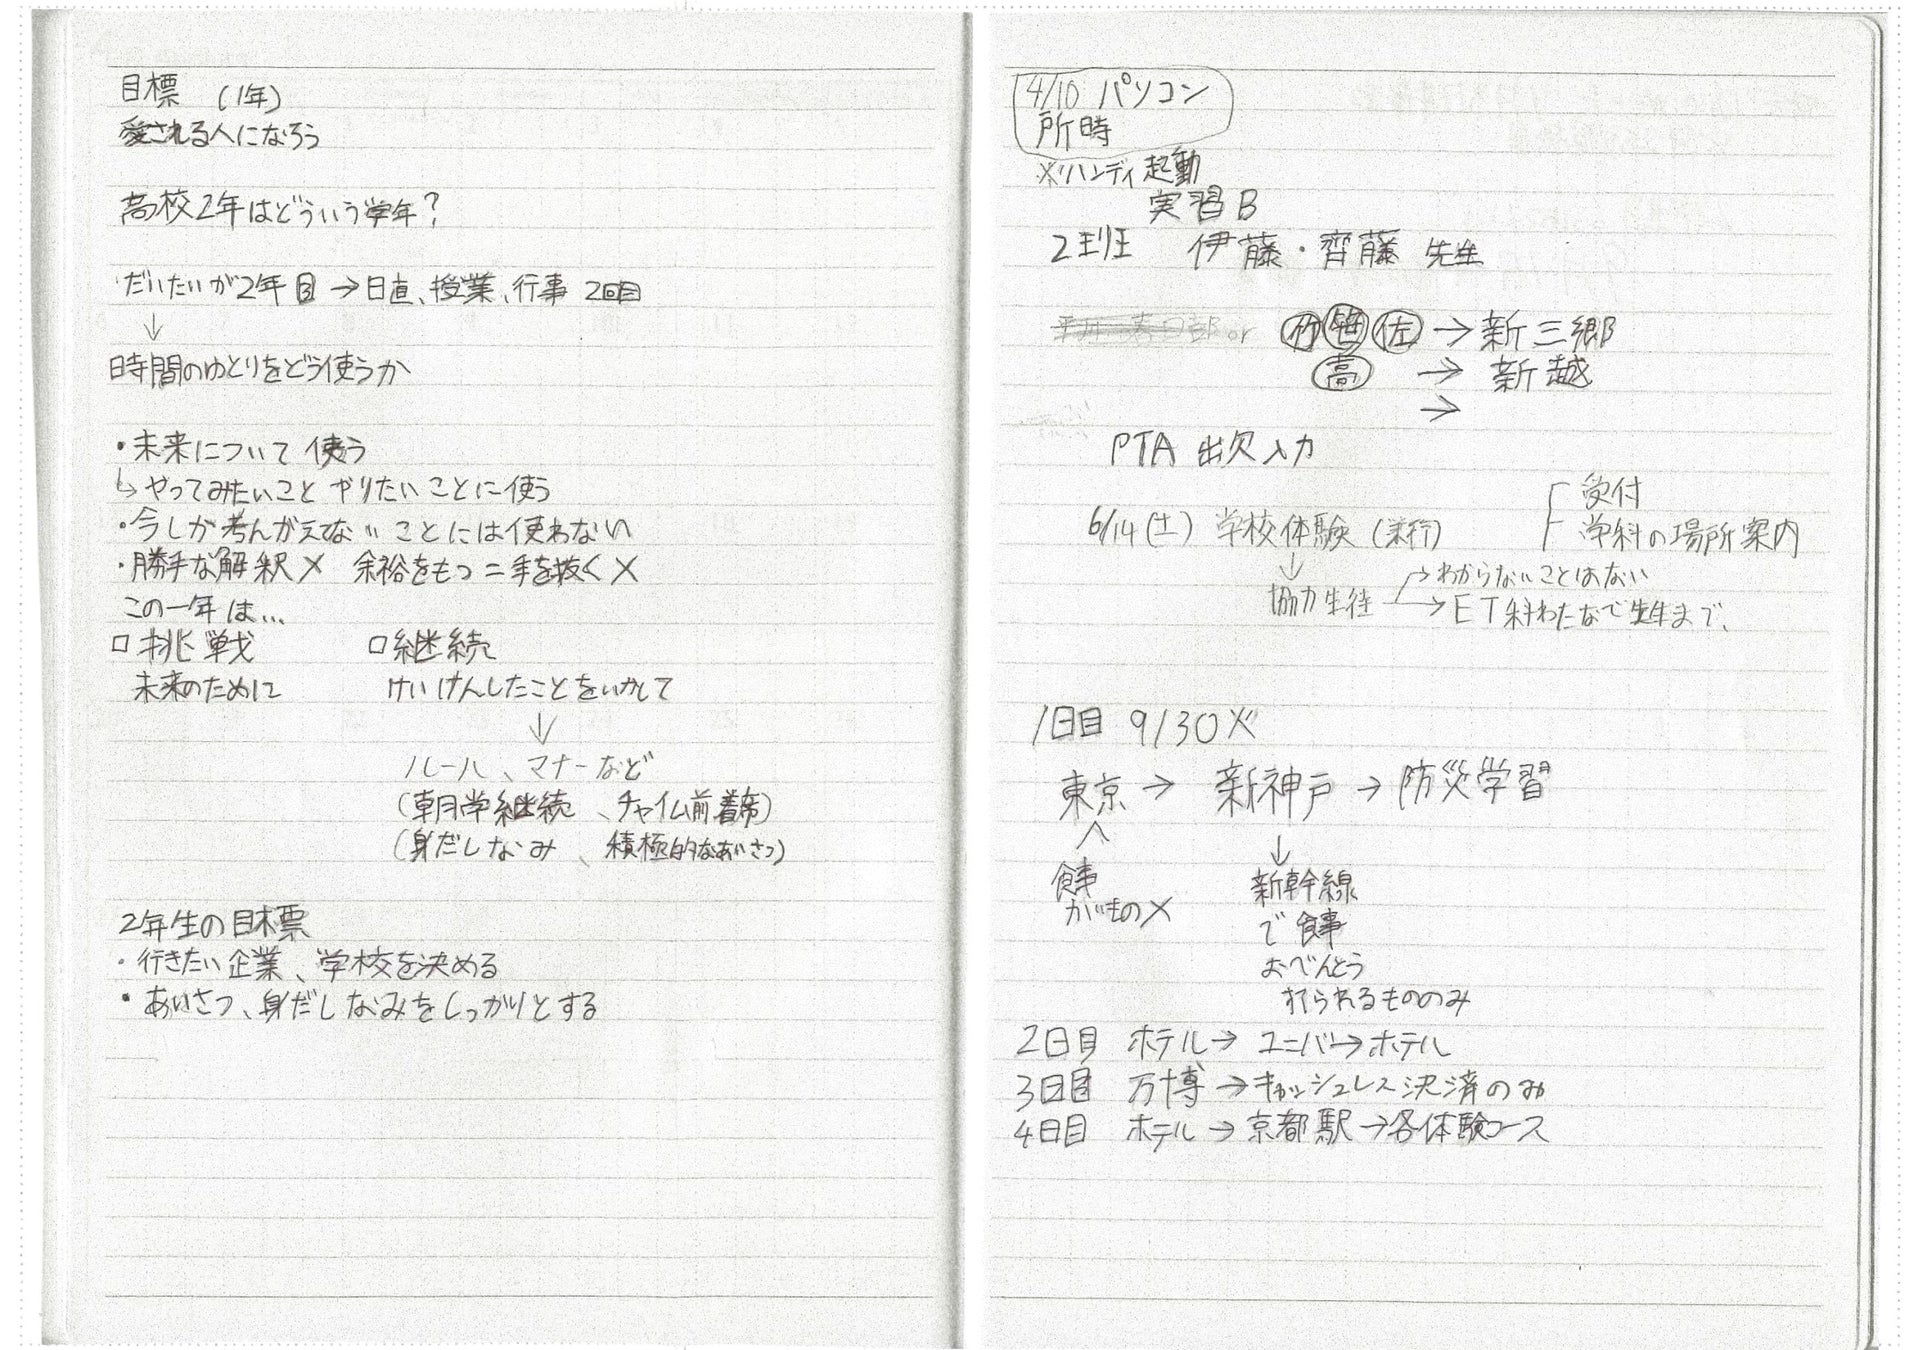 目標 (1年)
愛される人になろう
高校2年はどういう学年?
だいたいが2年目→日直、授業、行事 2回目
↓
時間のゆとりをどう使うか
・未来について使う
↳やってみたいこと やりたいことに使う
・今しか考んがえてないことには使わない
・勝手な解釈× 余裕をもつ=手を抜く×
この一年は…
□挑戦 □継続
未来のために けいけんしたことをいかして
↓
ルール、マナーなど
(朝学継続、チャイム前着席)
(身だしなみ、積極的なあいさつ)
2年生の目標
・行きたい企業、学校を決める
・あいさつ、身だしなみをしっかりとする
4/10 パソコン
所時
※ハンディ起動
実習B
2班 伊藤・齊藤 先生
or 竹 笹 佐 → 新三郷
高 → 新越
→
PTA 出欠入力
受付
6/14(土) 学校体験 学科の場所案内
↓ →わからないことはない
協力生徒 →ET科わたなで先生まで、
1日目 9/30火
東京 → 新神戸 → 防災学習
↓
食事 新幹線
がいもの× で食事
おべんとう
られるもののみ
2日目 ホテル→ユニバ→ホテル
3日目 万博→キャッシュレス決済のみ
4日目 ホテル→京都駅→各体験コース